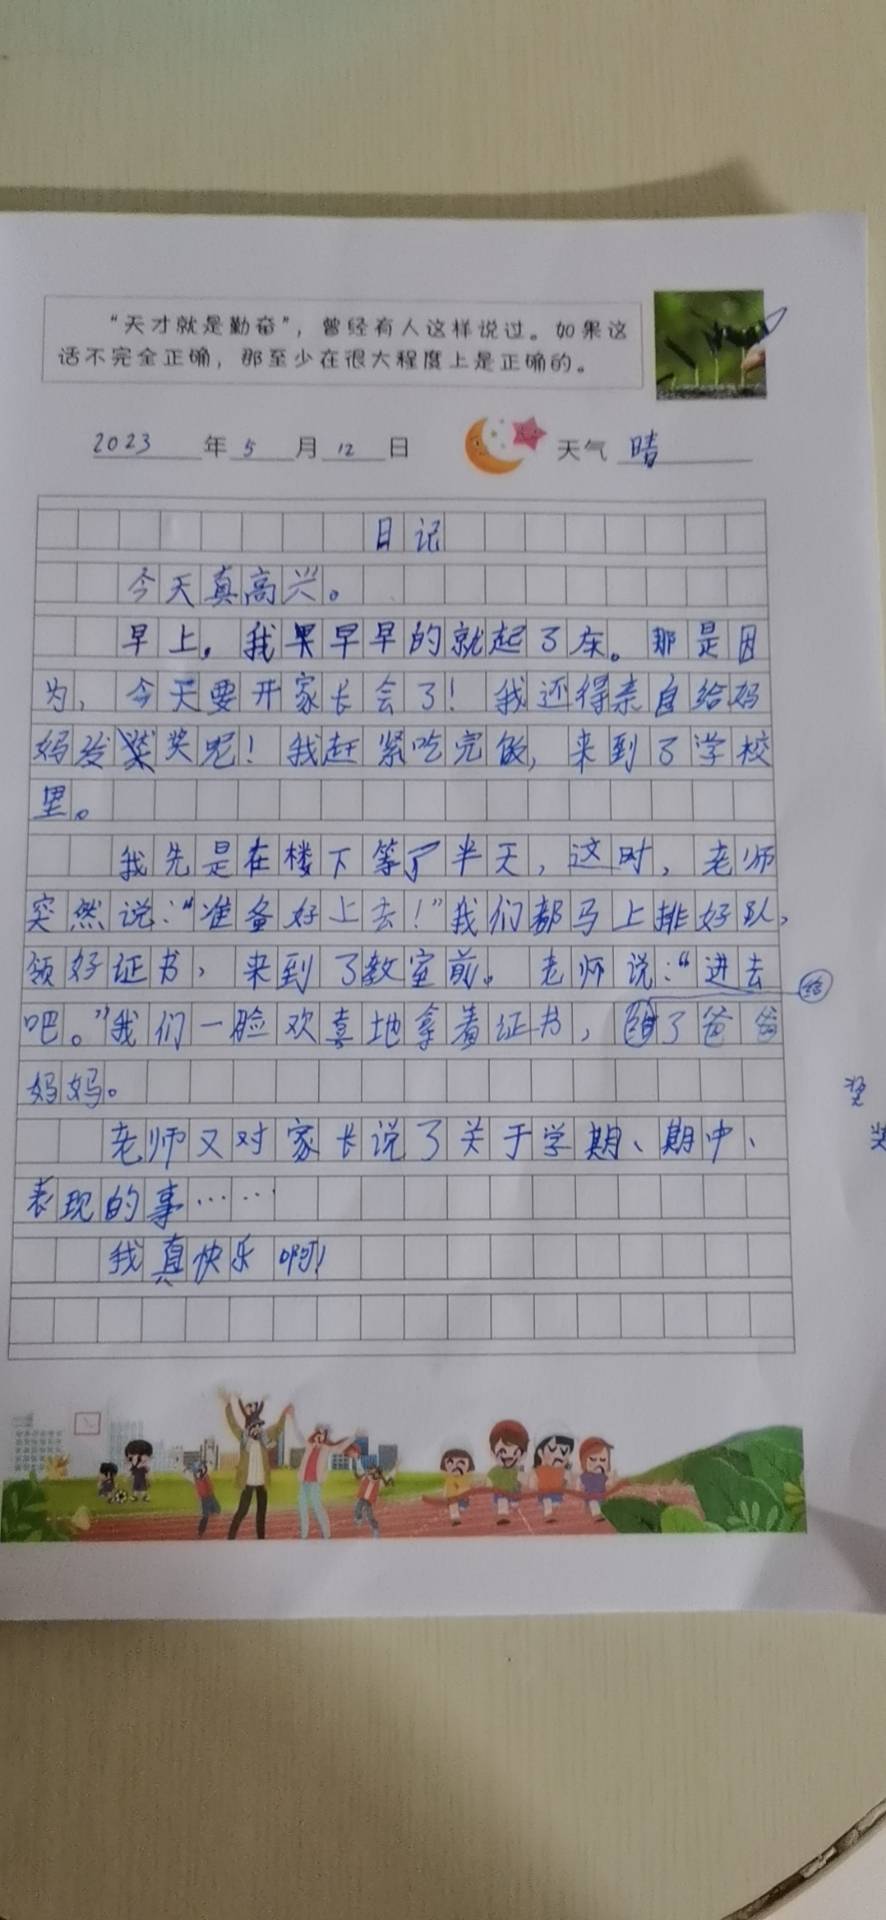 “天才就是勤奋”，曾经有人这样说过。如果这
话不完全正确，那至少在很大程度上是正确的。
2023年5月12日 天气 晴
日记
今天真高兴。
早上，我早早的就起了床。那是因
为，今天要开家长会了！我还得亲自给妈
妈发奖呢！我赶紧吃完饭，来到了学校
里。
我先是在楼下等了半天，这时，老师
突然说：“准备好上去！”我们都马上排好队，
领好证书，来到了教室前。老师说：“进去
给
吧。”我们一脸欢喜地拿着证书，了爸爸
妈妈。
奖
老师又对家长说了关于学期、期中、
表现的事……
我真快乐啊！